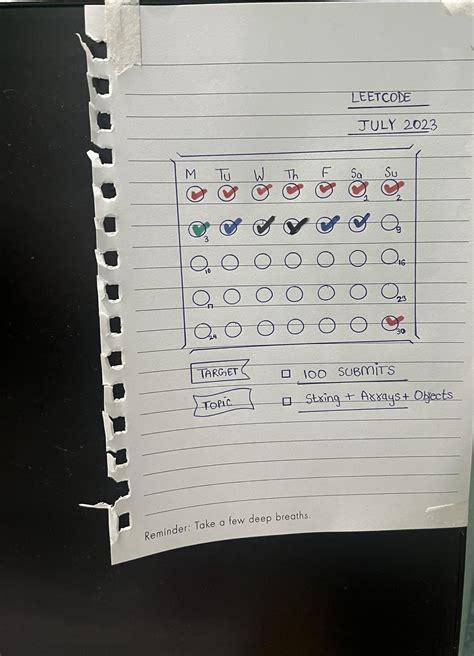 LEETCODE
JULY 2023
M Tu W Th F Sa Su
1 2
3 9
10 16
17 23
24 30
TARGET 100 SUBMITS
TOPIC String + Arrays + Objects
Reminder: Take a few deep breaths.